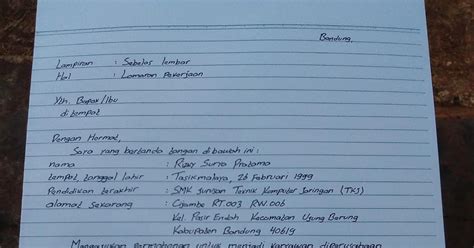 Bandung,
Lampiran : Sebelas lembar
Hal : Lamaran Pekerjaan
Yth. Bapak/Ibu
di tempat
Dengan Hormat,
Saya yang bertanda tangan dibawah ini :
nama : Rizky Suryo Pratama
tempat, tanggal lahir : Tasikmalaya, 26 Februari 1999
Pendidikan terakhir : SMK Jurusan Teknik Komputer Jaringan (TKJ)
alamat Sekarang : Cijambe RT.003 RW.006
Kel. Pasir Endah Kecamatan Ujung Berung
Kabupaten Bandung 40619
Mengajukan permohonan untuk menjadi karyawan diperusahaan